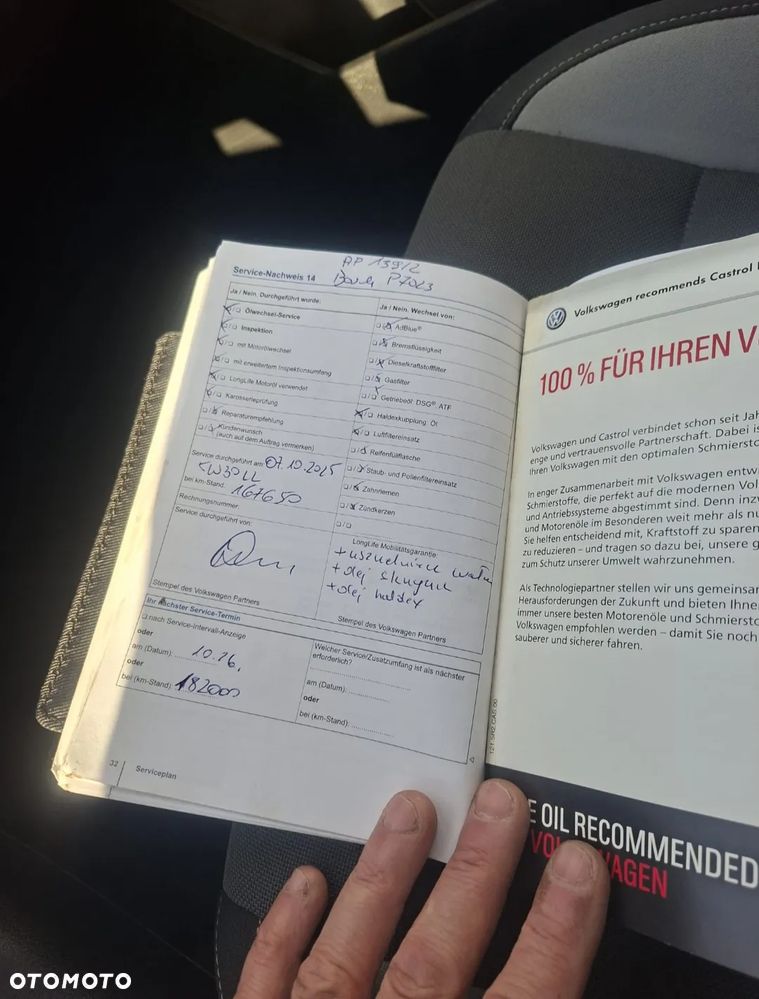 AP 139/2
Service-Nachweis 14
Bosch P7023
Ja / Nein. Durchgeführt wurde:
Ölwechsel-Service
Inspektion
mit Motorölwechsel
mit erweitertem Inspektionsumfang
LongLife Motoröl verwendet
Karosserieprüfung
Reparaturempfehlung
Kundenwunsch
(auch auf dem Auftrag vermerken)
Service durchgeführt am: 07.10.2025
5W30LL
bei km-Stand: 167650
Rechnungsnummer:
Service durchgeführt von:
Stempel des Volkswagen Partners
Ja / Nein. Wechsel von:
AdBlue®
Bremsflüssigkeit
Dieselkraftstofffilter
Gasfilter
Getriebeöl: DSG®, ATF
Haldexkupplung: Öl
Luftfiltereinsatz
Reifenfüllflasche
Staub- und Pollenfiltereinsatz
Zahnriemen
Zündkerzen
LongLife Mobilitätsgarantie:
+ olej
+ olej haldex
Stempel des Volkswagen Partners
Ihr nächster Service-Termin
nach Service-Intervall-Anzeige
oder
am (Datum): 10.26.
oder
bei (km-Stand): 182000
Welcher Service/Zusatzumfang ist als nächster
erforderlich?
am (Datum):
oder
bei (km-Stand):
32 Serviceplan
121.5R2.CAS.00
Volkswagen recommends Castrol
100 % FÜR IHREN V
Volkswagen und Castrol verbindet schon seit Jah
enge und vertrauensvolle Partnerschaft. Dabei is
Ihren Volkswagen mit den optimalen Schmiersto
In enger Zusammenarbeit mit Volkswagen entw
Schmierstoffe, die perfekt auf die modernen Vol
und Antriebssysteme abgestimmt sind. Denn inzw
und Motorenöle im Besonderen weit mehr als nu
Sie helfen entscheidend mit, Kraftstoff zu sparen
zu reduzieren – und tragen so dazu bei, unsere g
zum Schutz unserer Umwelt wahrzunehmen.
Als Technologiepartner stellen wir uns gemeinsam
Herausforderungen der Zukunft und bieten Ihne
immer unsere besten Motorenöle und Schmiersto
Volkswagen empfohlen werden – damit Sie noch
sauberer und sicherer fahren.
E OIL RECOMMENDED
VOLKSWAGEN
OTOMOTO